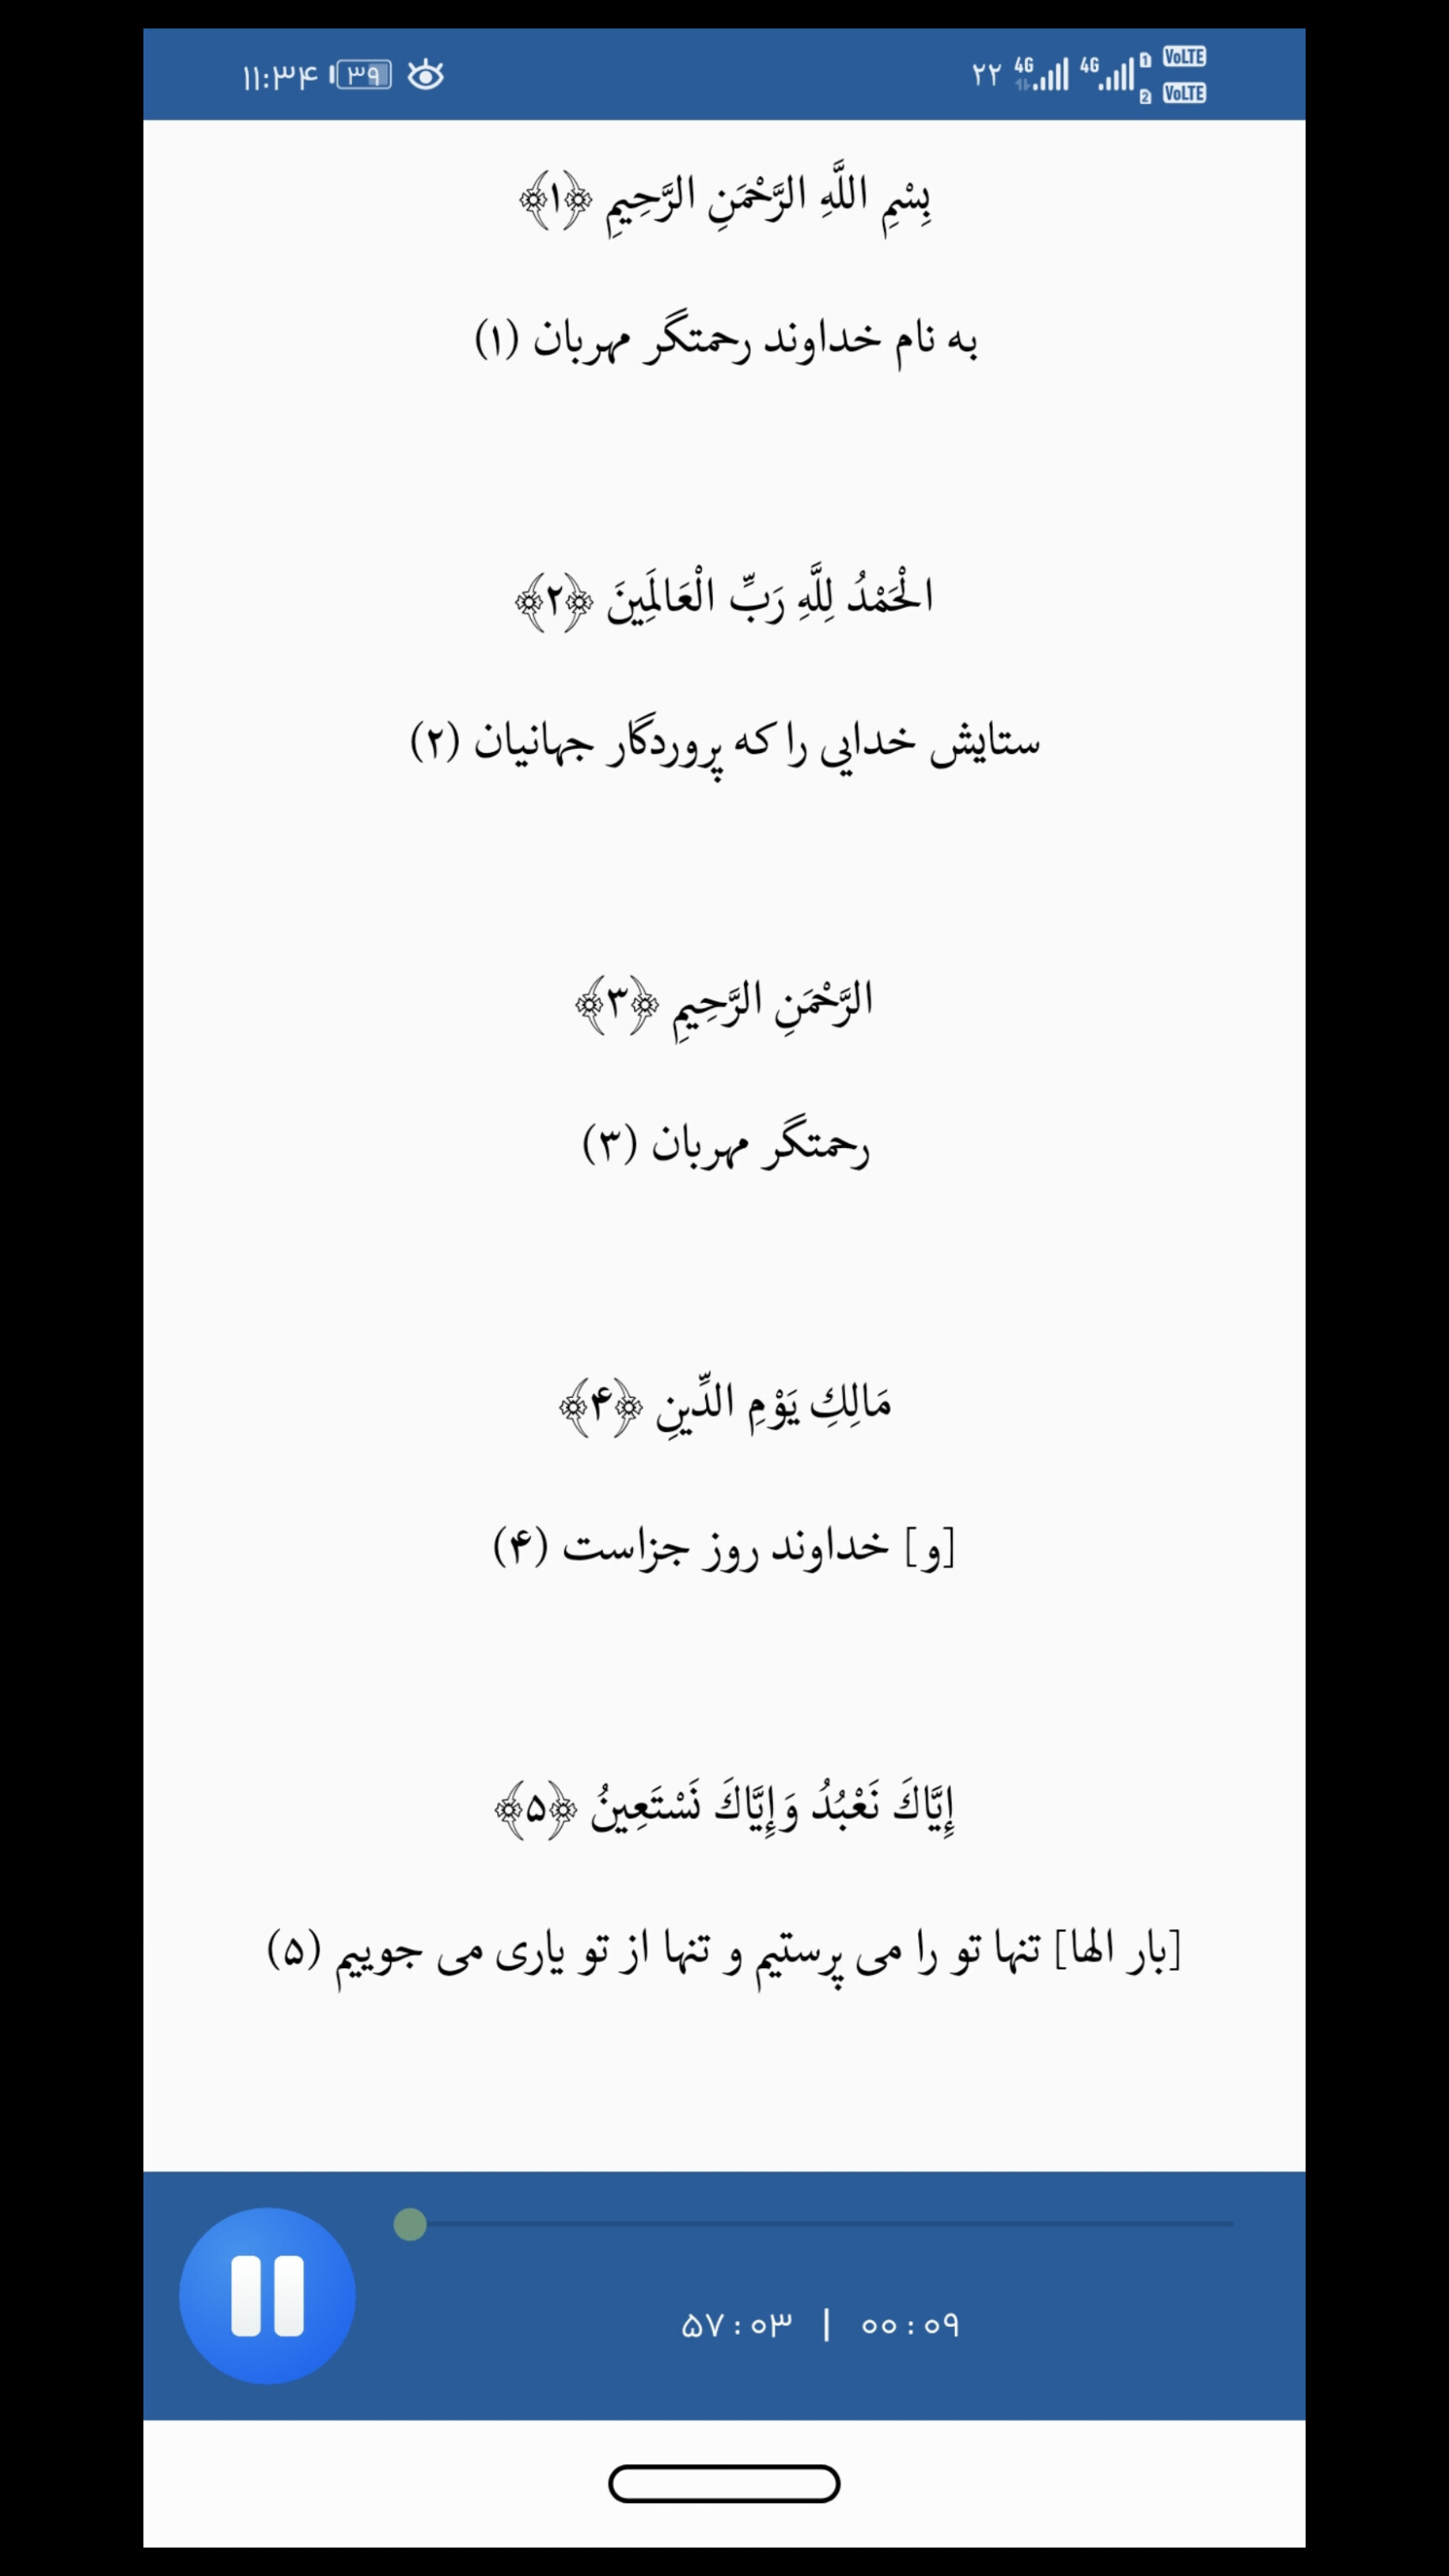 ۱۱:۳۴ ۳۹ ۲۲ 4G 4G 1 VoLTE
2 VoLTE
بِسْمِ اللَّهِ الرَّحْمَنِ الرَّحِيمِ ﴿۱﴾
به نام خداوند رحمتگر مهربان (۱)
الْحَمْدُ لِلَّهِ رَبِّ الْعَالَمِينَ ﴿۲﴾
ستایش خدایی را که پروردگار جهانیان (۲)
الرَّحْمَنِ الرَّحِيمِ ﴿۳﴾
رحمتگر مهربان (۳)
مَالِكِ يَوْمِ الدِّينِ ﴿۴﴾
[و] خداوند روز جزاست (۴)
إِيَّاكَ نَعْبُدُ وَإِيَّاكَ نَسْتَعِينُ ﴿۵﴾
[بار الها] تنها تو را می پرستیم و تنها از تو یاری می جوییم (۵)
۵۷:۰۳ | ۰۰:۰۹